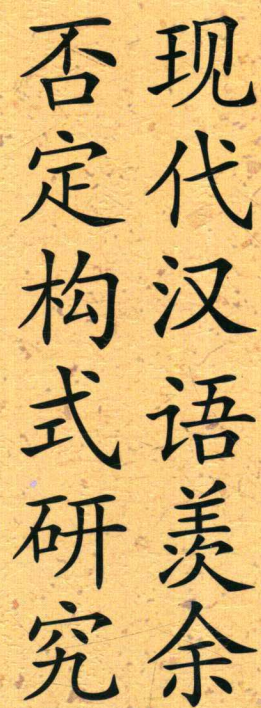 现代汉语羡余
否定构式研究